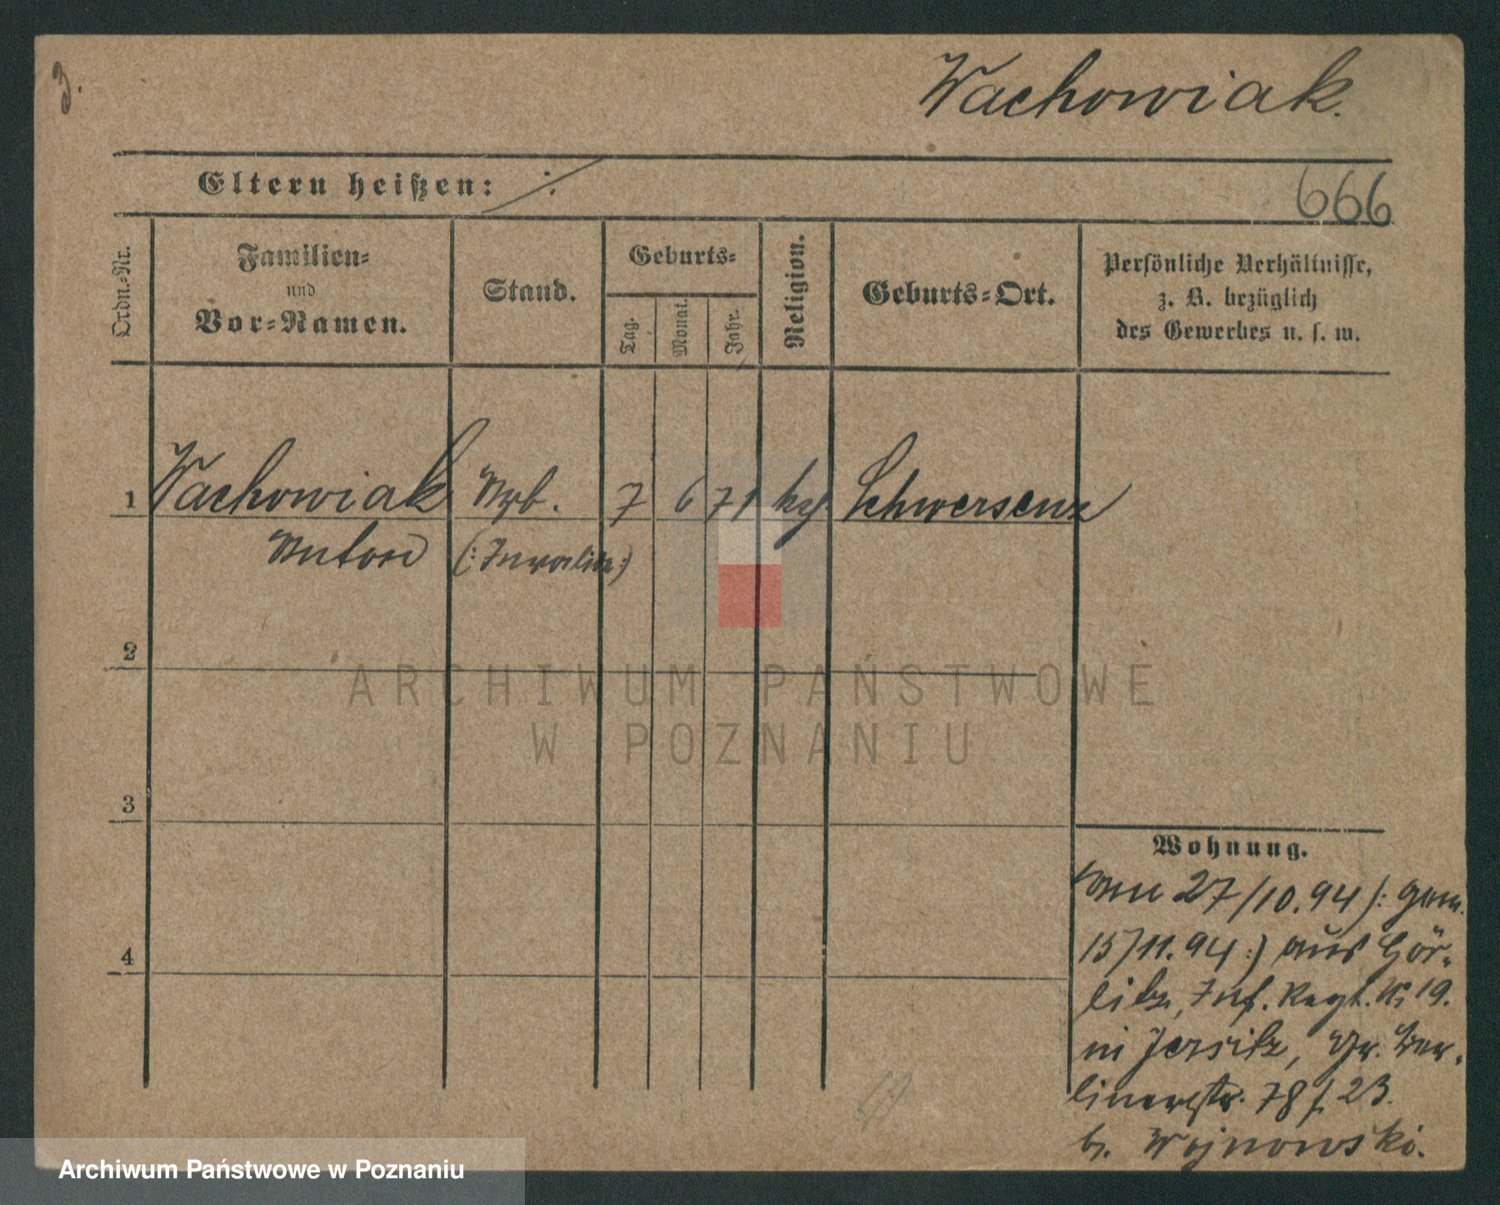 3.
Wachowiak.
Eltern heißen: ./.
666
Ordn.-Nr.
Familien-
und
Vor-Namen.
Stand.
Geburts-
Tag.
Monat.
Jahr.
Religion.
Geburts-Ort.
Persönliche Verhältnisse,
z. B. bezüglich
des Gewerbes u. s. w.
1 Wachowiak Arb. 7 6 71 kth. Schwersenz
Anton (: Invalide :)
2
3
4
Wohnung.
27/10.94 (: gem.
15/11.94 :) aus Gör-
litz, Inf. Regt. No 19.
in Jersitz, Gr. Ber-
linerstr. 78 f. 23.
b. Wojnowski.
ARCHIWUM PAŃSTWOWE
W POZNANIU
Archiwum Państwowe w Poznaniu